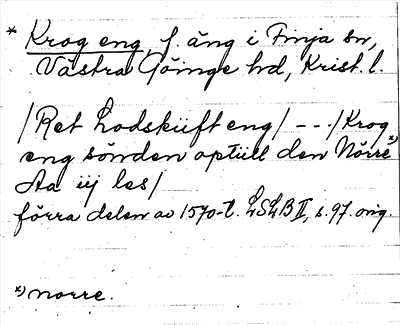 * Krog eng, f. äng i Finja sn,
Västra Göinge hd, Krist. l.
/Ret Lodskiifft eng/ - - -/Krog
eng sönden optiill den Nörre *)
Aa iij les/
förra delen av 1570-t. LSLB II, s. 97. orig.
*) norre.